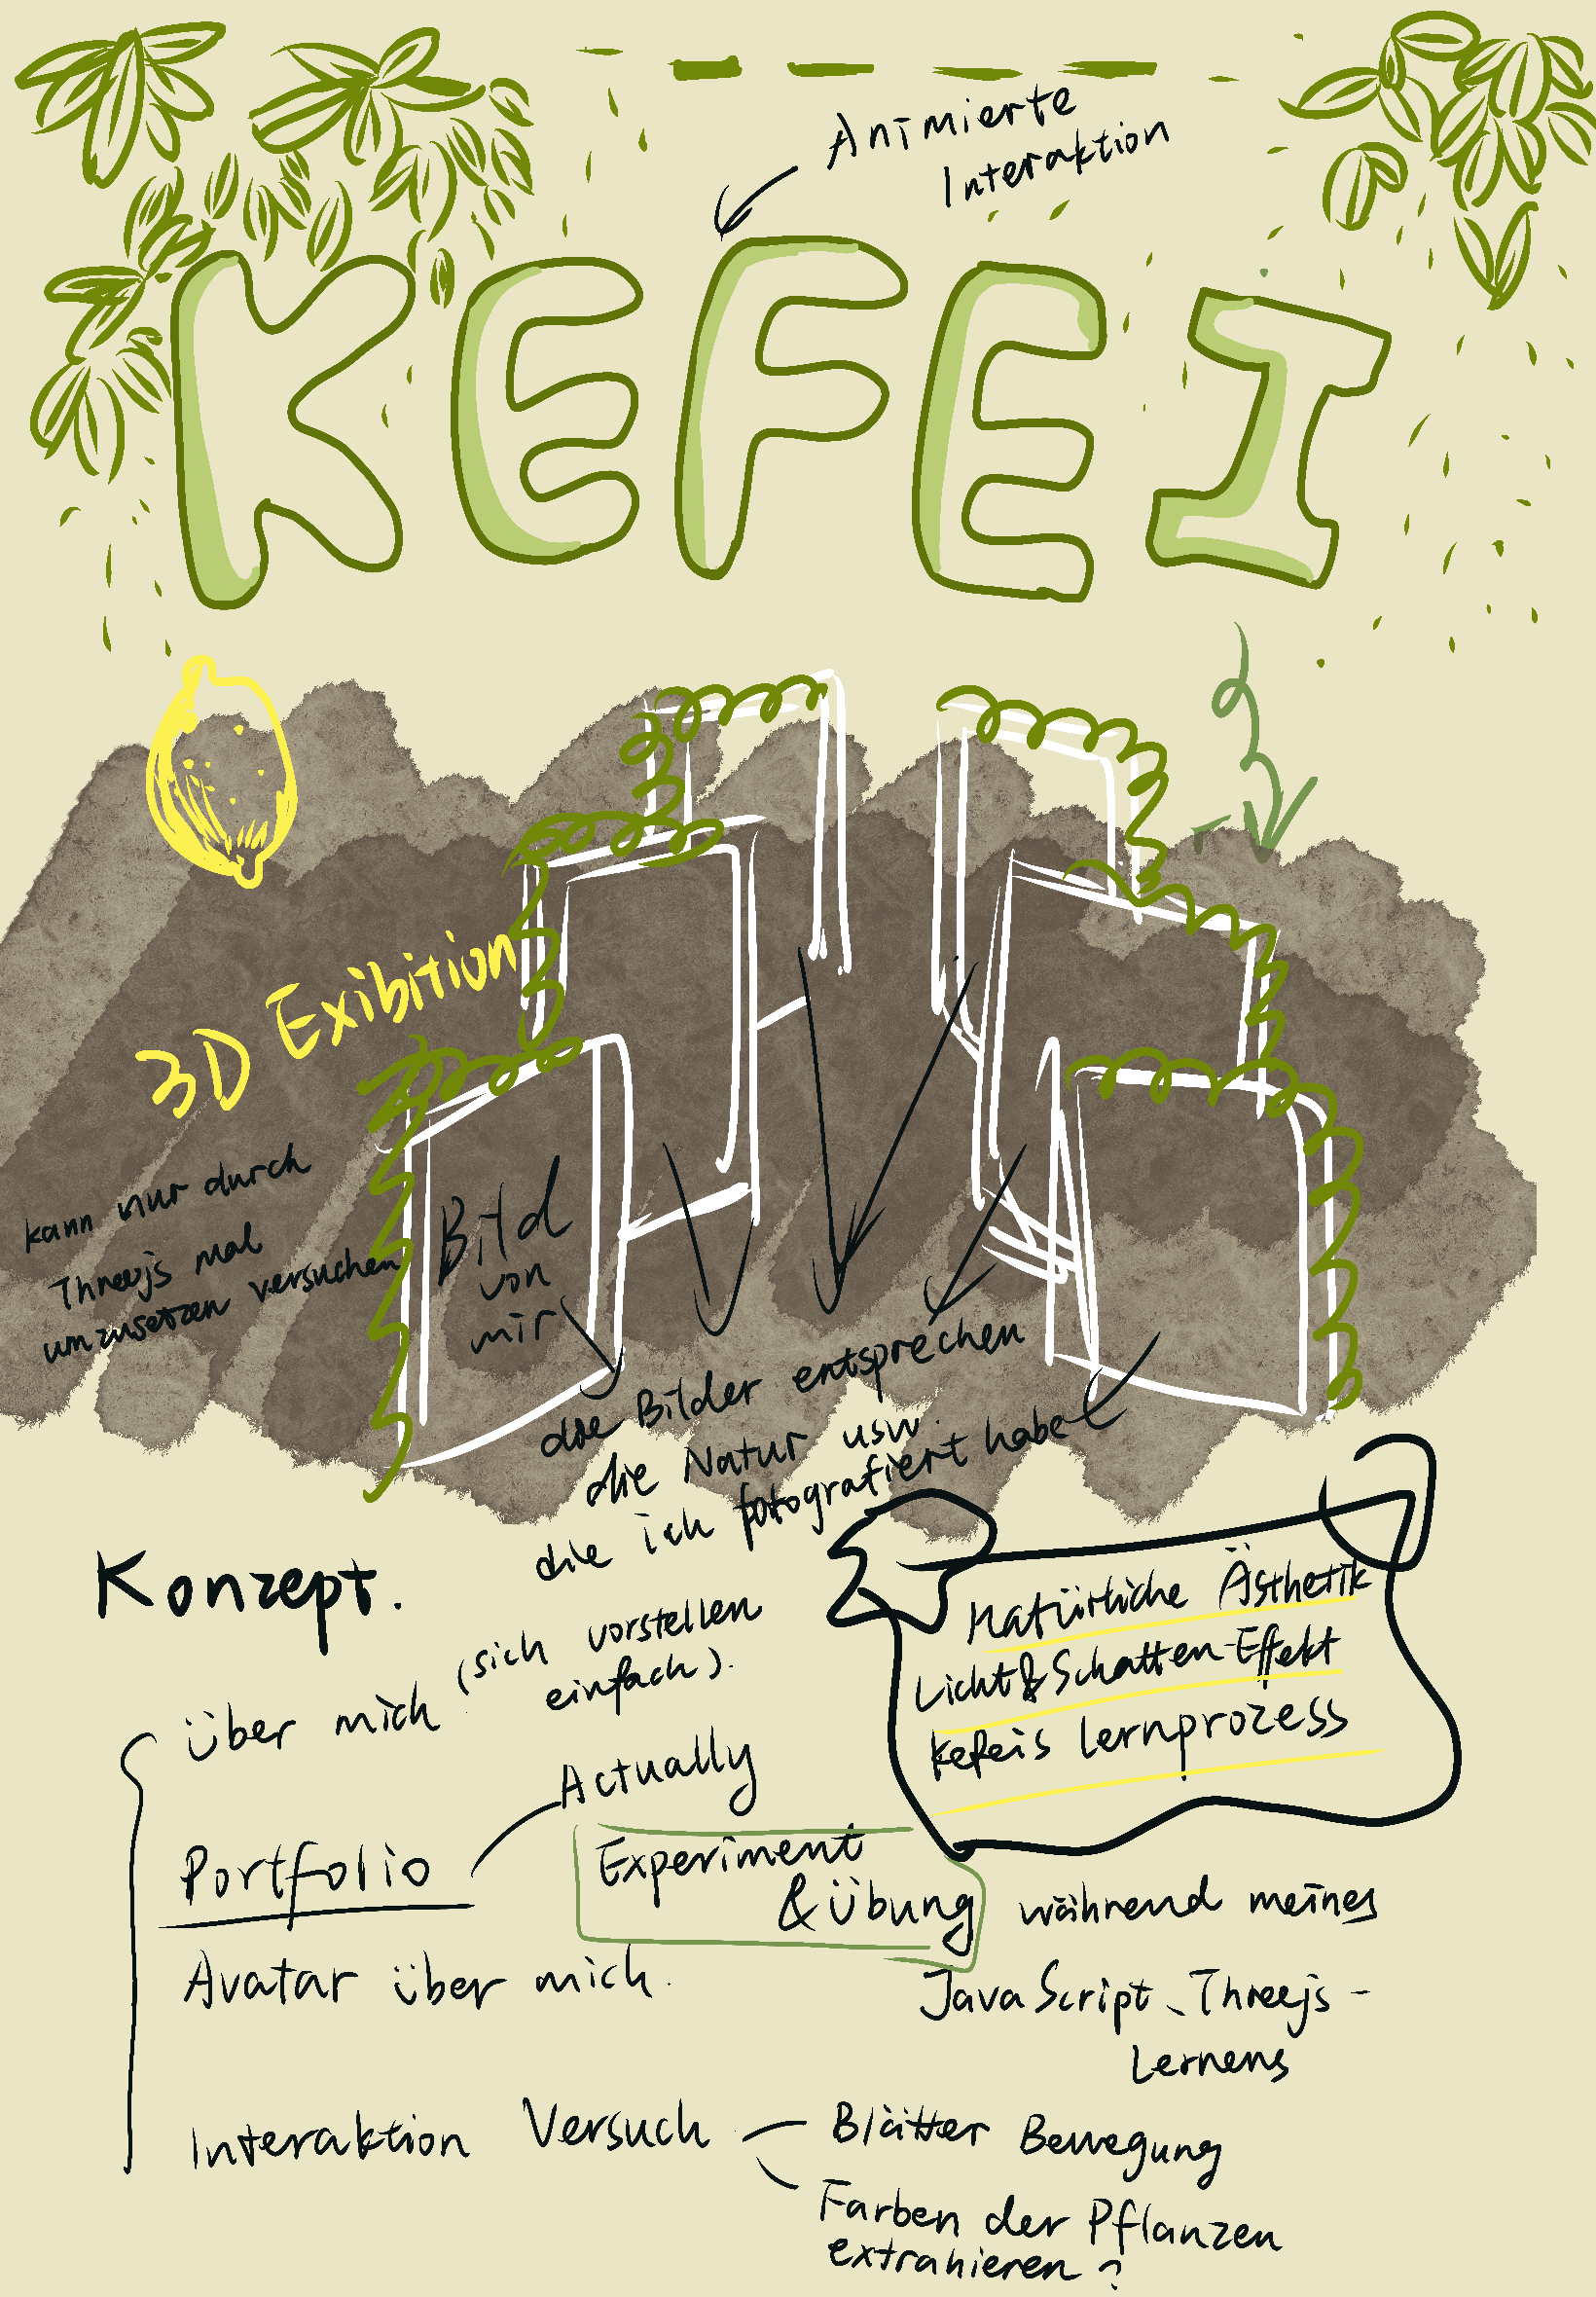 Animierte
Interaktion
KEFEI
3D Exibition
kann nur durch
Threejs mal
umzusetzen versuchen
Bild
von
mir
die Bilder entsprechen
die Natur usw.
die ich fotografiert habe
Konzept.
Natürliche Ästhetik
Licht&Schatten-Effekt
Kefeis Lernprozess
über mich (sich vorstellen
einfach).
Portfolio
Actually
Experiment
& Übung während meines
JavaScript、Threejs-
Lernens
Avatar über mich.
Interaktion Versuch
Blätter Bewegung
Farben der Pflanzen
extrahieren?